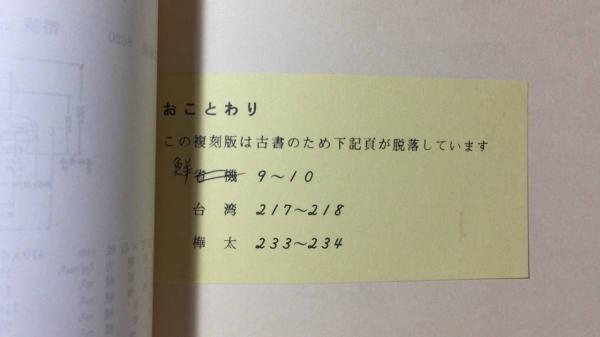 おことわり
この複刻版は古書のため下記頁が脱落しています
鮮 省機 9~10
台湾 217~218
樺太 233~234